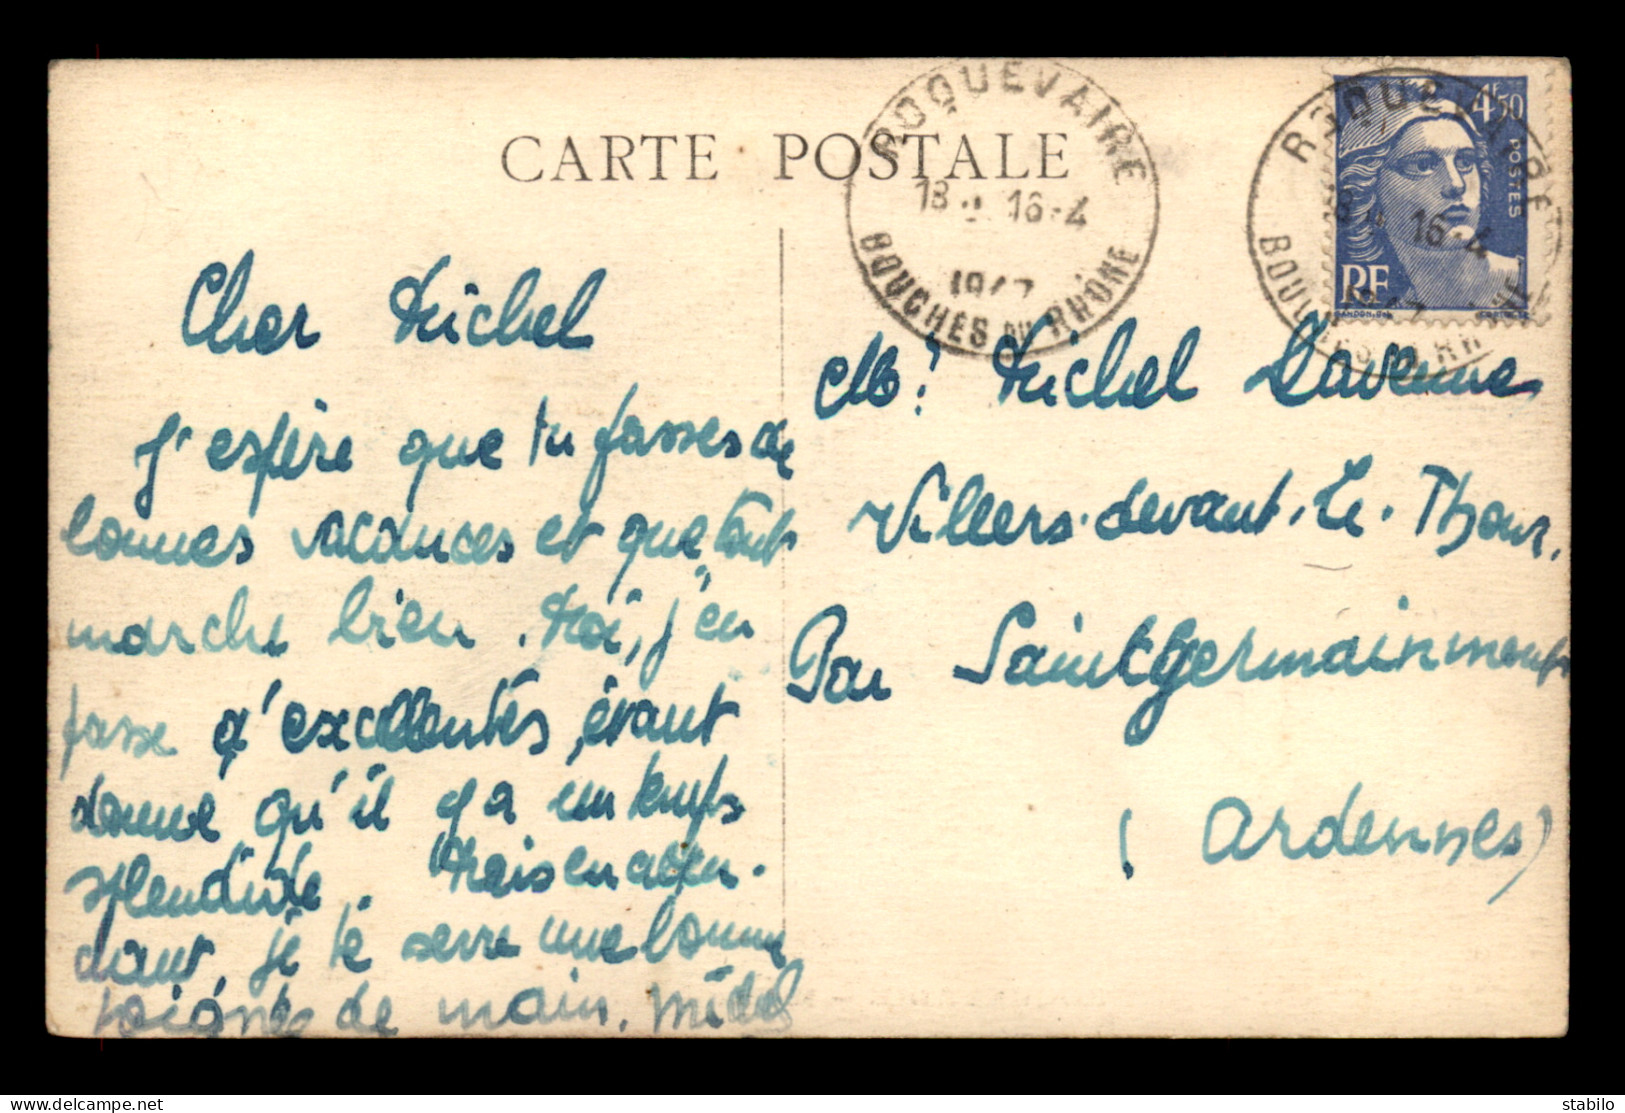 CARTE POSTALE
ROQUEVAIRE
18 16-4
1947
BOUCHES DU RHÔNE
4F50
POSTES
RF
GANDON
Cher Michel
J'espère que tu fasses de
bonnes vacances et que tout
marche bien. Moi, j'en
fasse d'excellentes, étant
donné qu'il y a un temps
splendide. Mais en atten-
dant, je te serre une bonne
poignée de main. Michel
Mr. Michel Lavenne
Villers-devant-Le-Thour.
Par Saint Germainmont
(Ardennes)
stabilo